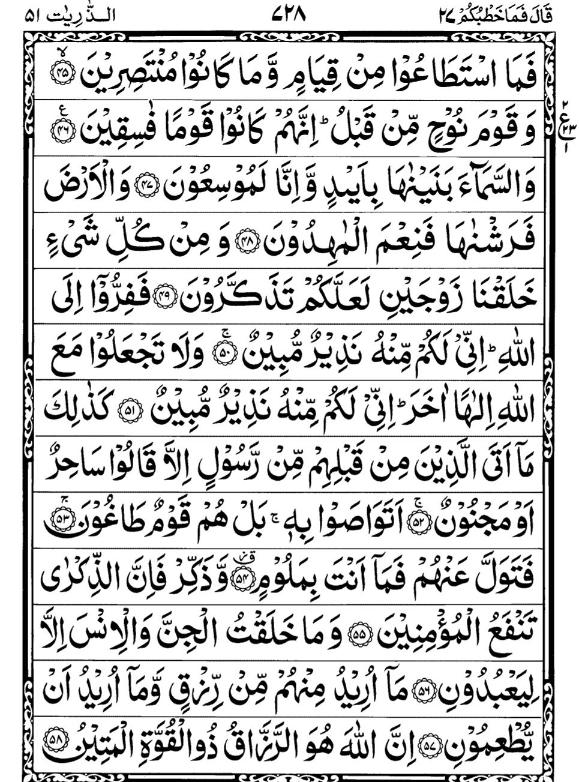 قَالَ فَمَا خَطْبُكُمْ ٢٧ ٧٢٨ الذّٰرِيٰت ٥١
فَمَا اسْتَطَاعُوْا مِنْ قِيَامٍ وَّمَا كَانُوْا مُنْتَصِرِيْنَ ۙ‏﴿۴۵﴾
وَقَوْمَ نُوْحٍ مِّنْ قَبْلُ ؕ اِنَّهُمْ كَانُوْا قَوْمًا فٰسِقِيْنَ ‏﴿۴۶﴾ ع ٢ ٢٣ ١
وَالسَّمَآءَ بَنَيْنٰهَا بِاَيْىدٍ وَّاِنَّا لَمُوْسِعُوْنَ ‏﴿۴۷﴾ وَالْاَرْضَ
فَرَشْنٰهَا فَنِعْمَ الْمٰهِدُوْنَ ‏﴿۴۸﴾ وَمِنْ كُلِّ شَىْءٍ
خَلَقْنَا زَوْجَيْنِ لَعَلَّكُمْ تَذَكَّرُوْنَ ‏﴿۴۹﴾ فَفِرُّوْۤا اِلَى
اللّٰهِ ؕ اِنِّىْ لَكُمْ مِّنْهُ نَذِيْرٌ مُّبِيْنٌ ۚ‏﴿۵۰﴾ وَلَا تَجْعَلُوْا مَعَ
اللّٰهِ اِلٰهًا اٰخَرَ ؕ اِنِّىْ لَكُمْ مِّنْهُ نَذِيْرٌ مُّبِيْنٌ ‏﴿۵۱﴾ كَذٰلِكَ
مَاۤ اَتَى الَّذِيْنَ مِنْ قَبْلِهِمْ مِّنْ رَّسُوْلٍ اِلَّا قَالُوْا سَاحِرٌ
اَوْ مَجْنُوْنٌ ۚ‏﴿۵۲﴾ اَتَوَاصَوْا بِهٖ ۚ بَلْ هُمْ قَوْمٌ طَاغُوْنَ ۚ‏﴿۵۳﴾
فَتَوَلَّ عَنْهُمْ فَمَاۤ اَنْتَ بِمَلُوْمٍ ‏﴿۵۴﴾ وَّذَكِّرْ فَاِنَّ الذِّكْرٰى
تَنْفَعُ الْمُؤْمِنِيْنَ ‏﴿۵۵﴾ وَمَا خَلَقْتُ الْجِنَّ وَالْاِنْسَ اِلَّا
لِيَعْبُدُوْنِ ‏﴿۵۶﴾ مَاۤ اُرِيْدُ مِنْهُمْ مِّنْ رِّزْقٍ وَّمَاۤ اُرِيْدُ اَنْ
يُّطْعِمُوْنِ ‏﴿۵۷﴾ اِنَّ اللّٰهَ هُوَ الرَّزَّاقُ ذُو الْقُوَّةِ الْمَتِيْنُ ‏﴿۵۸﴾